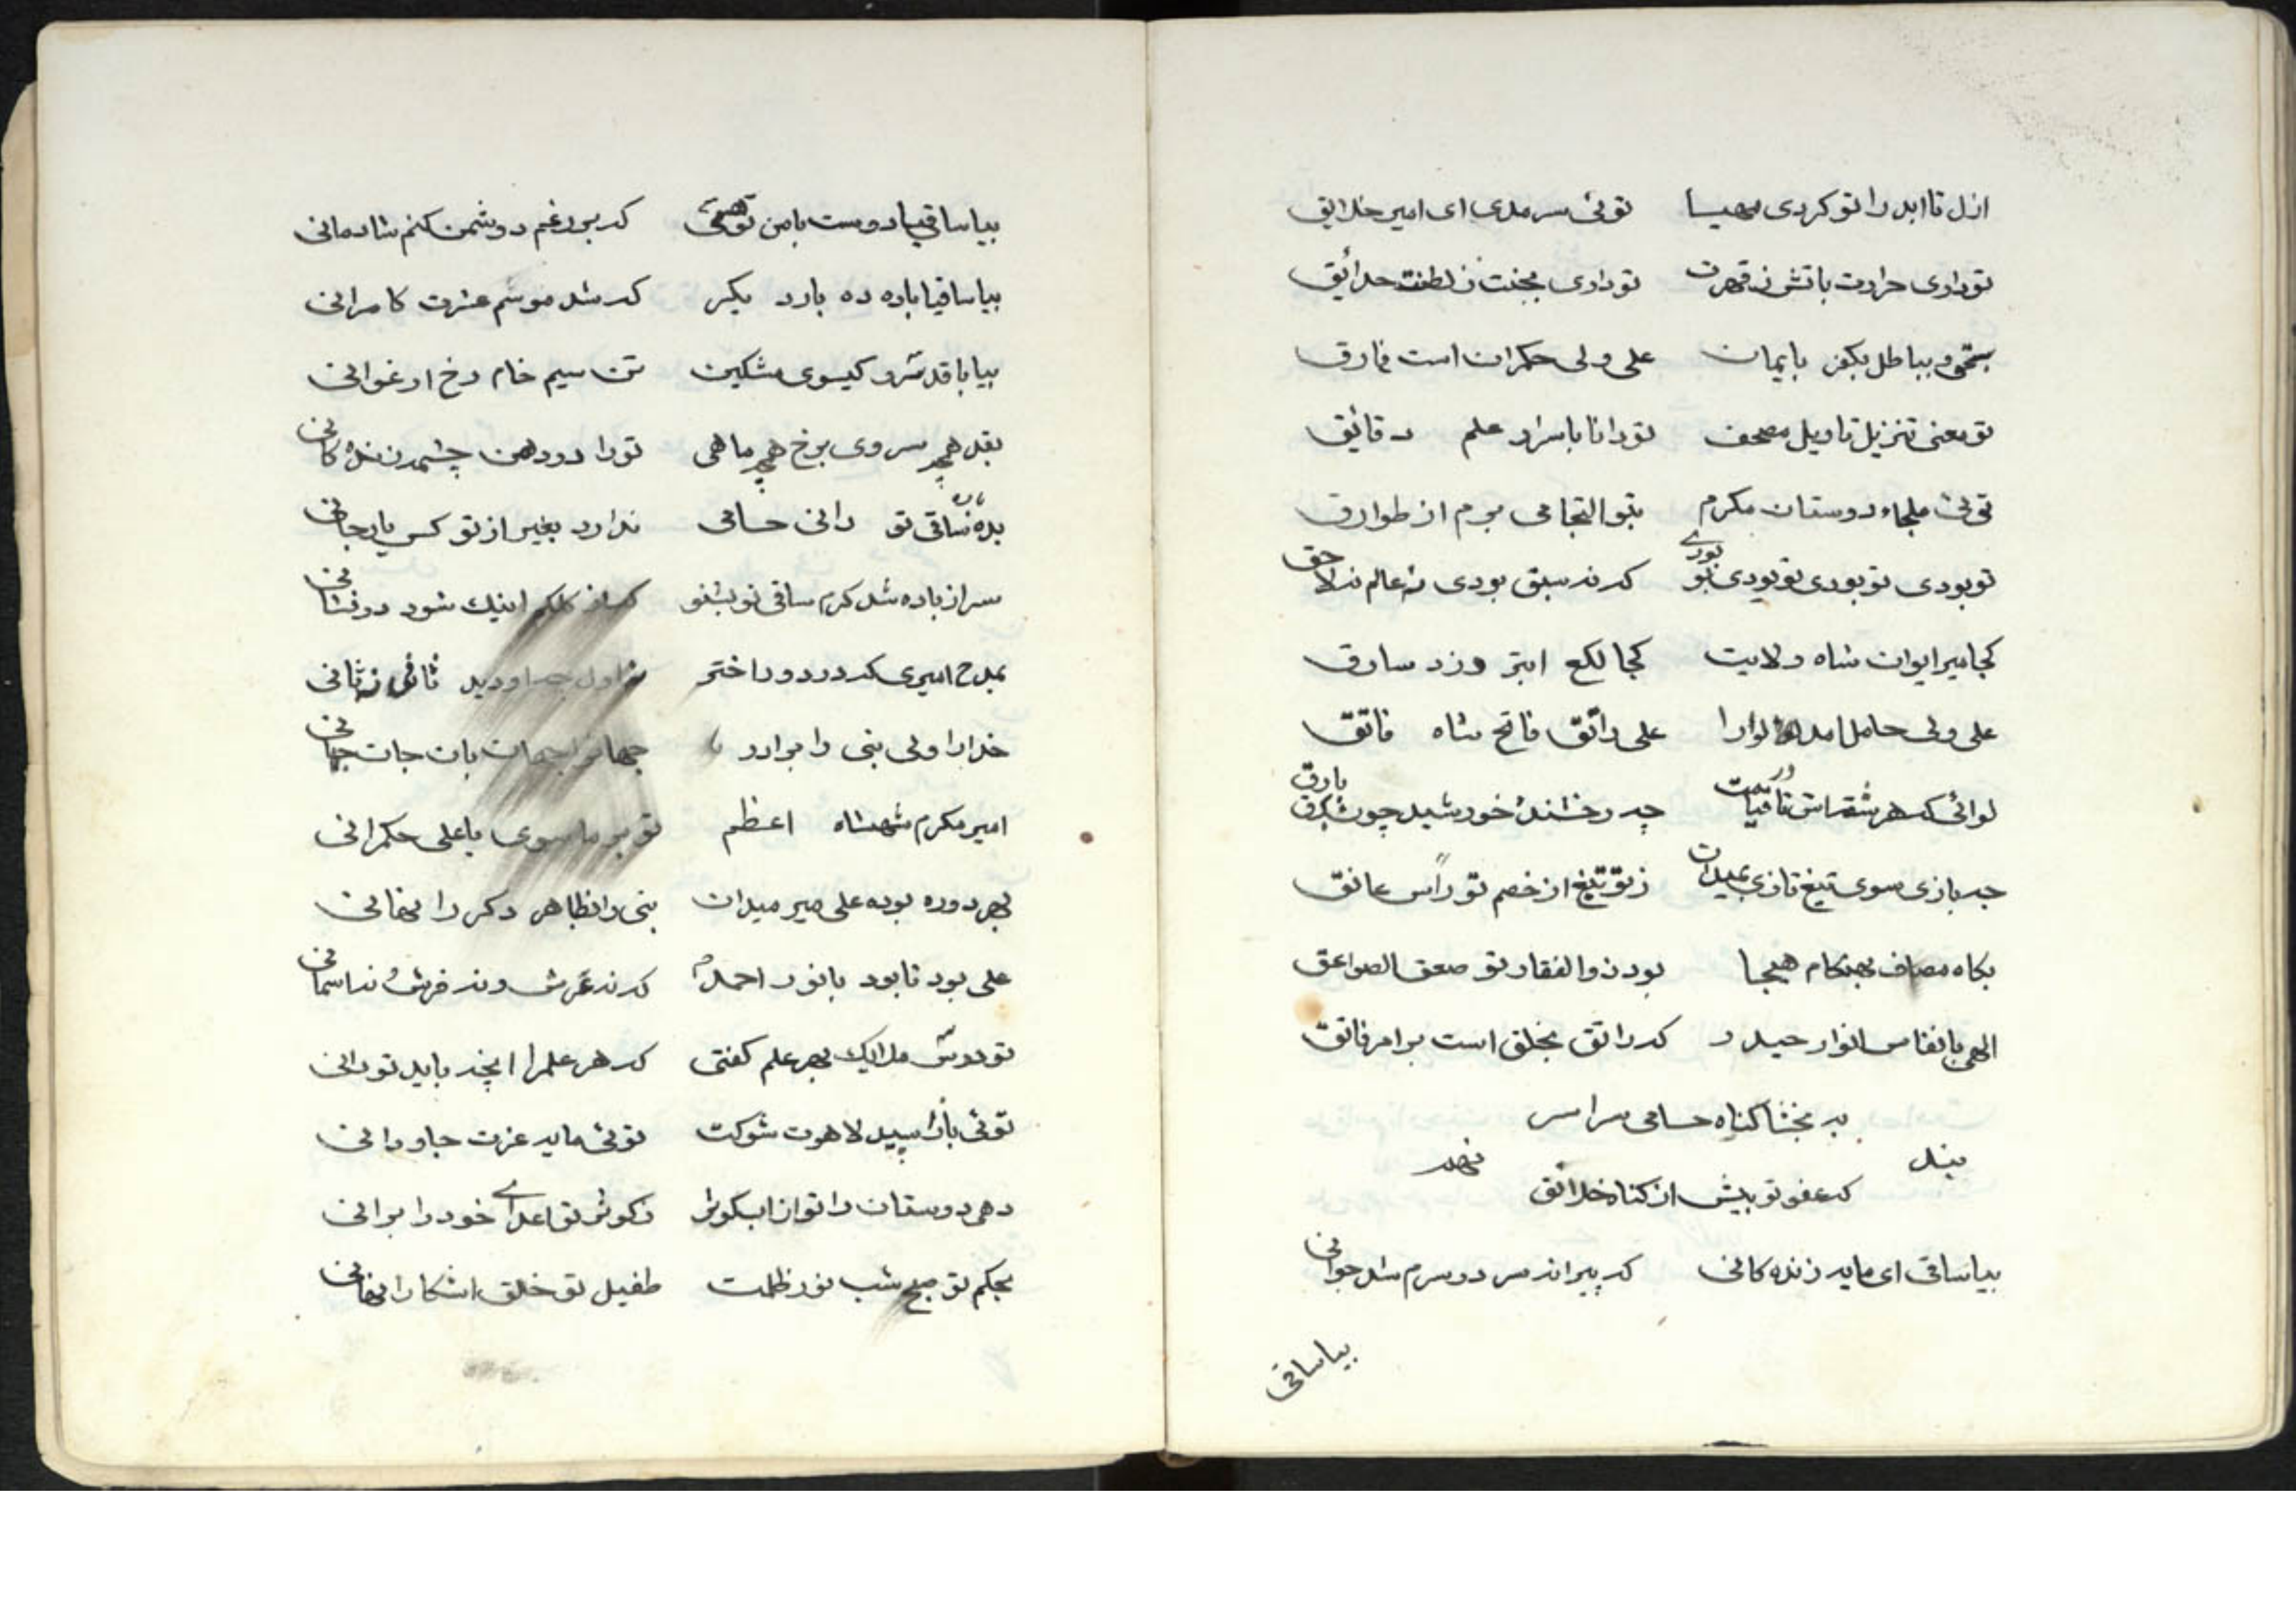 ازل تا ابد را تو کردی مهیا توئی سرمدی ای امیر خلایق
تو دادی حرارت باتش ز قهرت تو دادی بجنت ز لطفت حدائق
بحق و بباطل بکفر بایمان علی ولی حکمران است فارق
تو معنی تنزیل تاویل مصحف تو دانا باسرار علم دقائق
توئی ملجاء دوستان مکرم بتو التجا می برم از طوارق
تو بودی تو بودی تو بودی تو بودی که نه سبق بودی نه عالم نه لاحق
کجا میر ایوان شاه ولایت کجا لکع ابتر دزد سارق
علی ولی حامل لوا را علی راتق فاتح شاه فاتق
لوائی که هر شقه اش تا قیامت چه رخشنده خورشید چون بارق
چه بازی سوی تیغ تازی بمیدان ز تو تیغ از خصم تو راس عانق
بکاه مصاف بهنکام هیجا بود ذوالفقار تو صعق الصواعق
الهی بانفاس انوار حیدر که راتق بخلق است بر امر فاتق
به بخشا کناه حسامی سراسر
که عفو تو بیش از کناه خلائق
بیا ساقی ای مایه زنده کانی که پیرانه سر در سرم شد جوانی
بیا ساقی
بیا ساقیا دوست با من که بر رغم دشمن کنم شادمانی
بیا ساقیا باده ده بار دیکر که شد موسم عشرت کامرانی
بیا با قد سرو کیسوی مشکین تن سیم خام رخ ارغوانی
بقد همچه سروی برخ همچه ماهی تو را در دهن چشمه زنده کانی
بده ساقی تو رانی حسامی ندارد بغیر از تو کس یار جانی
سر از باده شد کرم ساقی تو بشنو که از کلکم اینک شود درفشانی
بمدح امیری که در دور اختر ز اول چه او دید ثانی نه ثانی
خدا را ولی نبی را برادر جهان جهانبان جان جهانی
امیر مکرم شهنشاه اعظم تو بر ماسوی یا علی حکمرانی
بهر دوره بوده علی میر میدان نبی را بظاهر دکر را نهانی
علی بود تا بود با نور احمد که نه عرش و نه فرش و نه اسمانی
تو در ملایک بهر علم کفتی که هر علم را انچه باید تو دانی
توئی لاهوت شوکت توئی مایه عزت جاودانی
دهی دوستان را تو از اب کوثر ز کوثر تو اعدای خود را برانی
بحکم تو صبح شب نور ظلمت طفیل تو خلق اشکارا نهانی